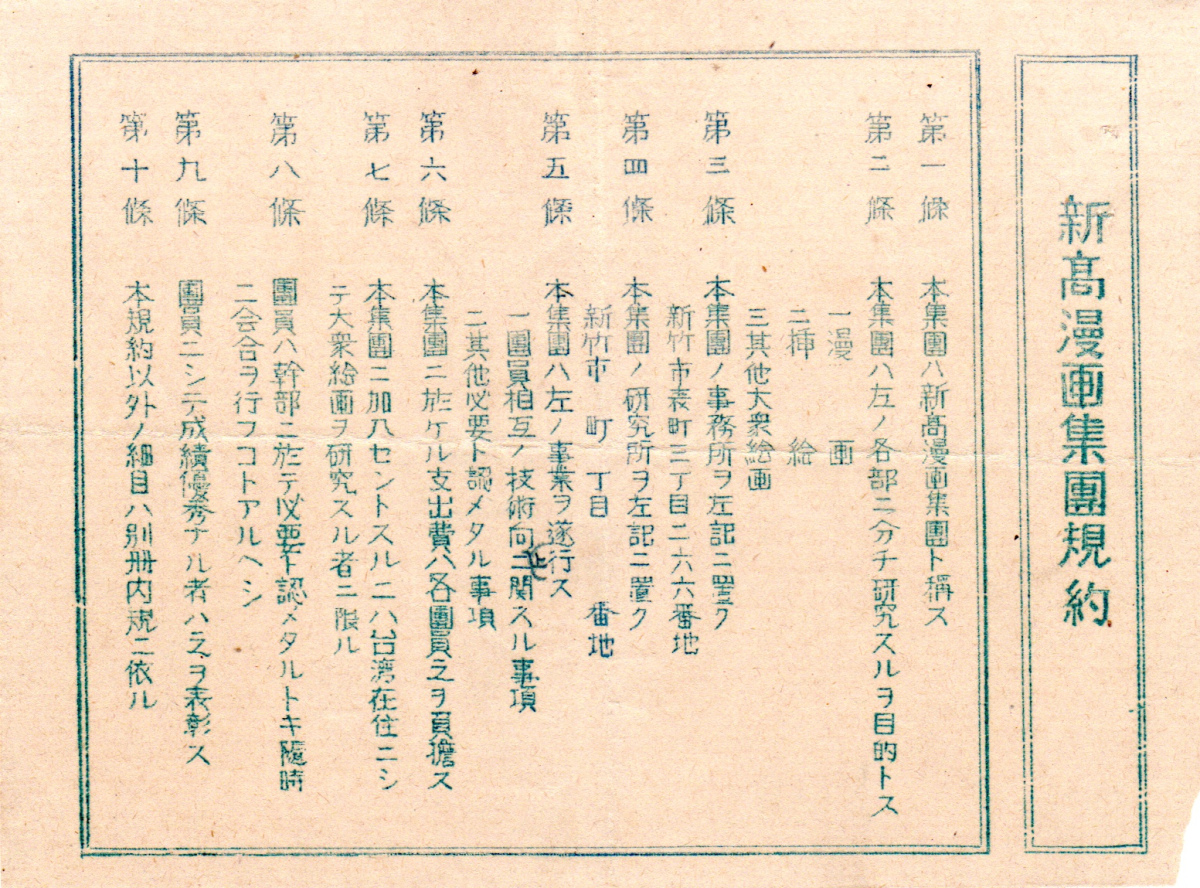 新高漫画集團規約
第一條 本集團ハ新高漫画集團ト稱ス
第二條 本集團ハ左ノ各部ニ分チ研究スルヲ目的トス
一漫画
二挿絵
三其他大衆絵画
第三條 本集團ノ事務所ヲ左記ニ置ク
新竹市表町三丁目二六六番地
第四條 本集團ノ研究所ヲ左記ニ置ク
新竹市 町 丁目 番地
第五條 本集團ハ左ノ事業ヲ遂行ス
一團員相互ノ技術向上ニ関スル事項
二其他必要ト認メタル事項
第六條 本集團ニ於ケル支出費ハ各團員之ヲ負擔ス
第七條 本集團ニ加入セントスルニハ台湾在住ニシ
テ大衆絵画ヲ研究スル者ニ限ル
第八條 團員ハ幹部ニ於テ必要ト認メタルトキ隨時
ニ会合ヲ行フコトアルヘシ
第九條 團員ニシテ成績優秀ナル者ハ之ヲ表彰ス
第十條 本規約以外ノ細目ハ別冊内規ニ依ル